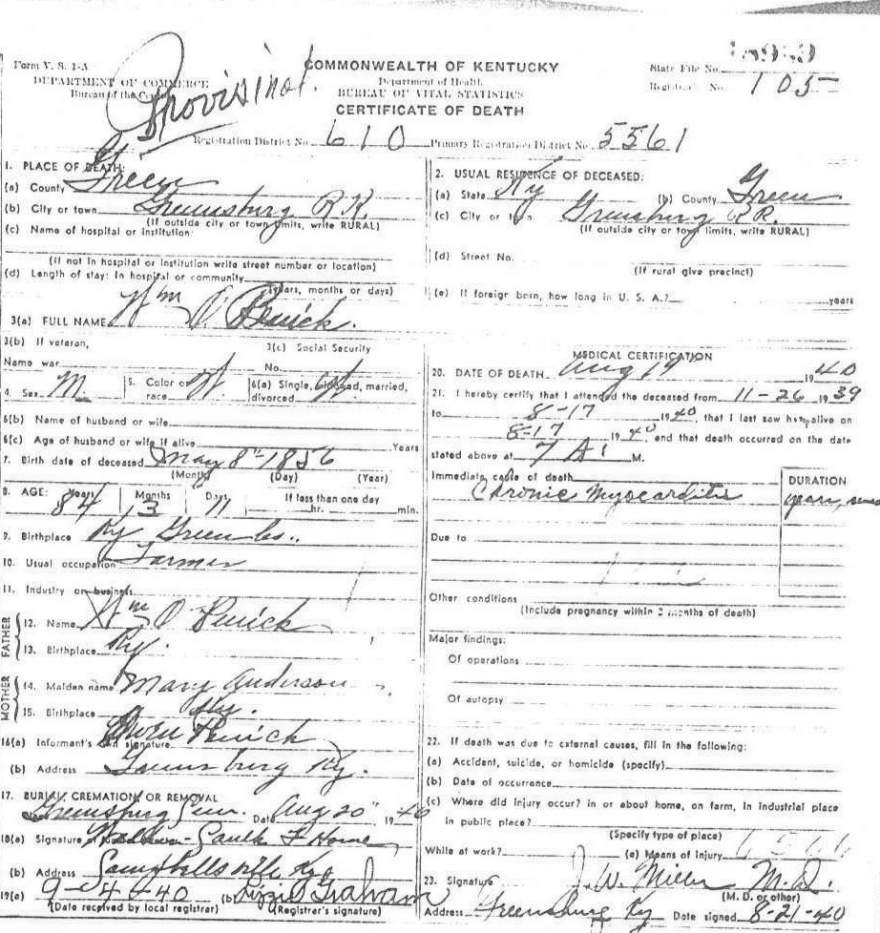 Form V. S. 1-A
DEPARTMENT OF COMMERCE
Bureau of the Census
Provisinal.
COMMONWEALTH OF KENTUCKY
Department of Health
BUREAU OF VITAL STATISTICS
CERTIFICATE OF DEATH
State File No.
Registrar's No. 105
Registration District No. 610 Primary Registration District No. 5561
1. PLACE OF DEATH:
(a) County Green
(b) City or town Greensburg R.R.
(If outside city or town limits, write RURAL)
(c) Name of hospital or institution:
(If not in hospital or institution write street number or location)
(d) Length of stay: In hospital or community
(years, months or days)
2. USUAL RESIDENCE OF DECEASED:
(a) State Ky (b) County Green
(c) City or town Greensburg R.R.
(If outside city or town limits, write RURAL)
(d) Street No.
(If rural give precinct)
(e) If foreign born, how long in U. S. A.? years
3(a) FULL NAME Wm O. Penick.
3(b) If veteran,
Name war
3(c) Social Security
No.
4. Sex M 5. Color or race W. 6(a) Single, widowed, married, divorced
6(b) Name of husband or wife
6(c) Age of husband or wife if alive Years
7. Birth date of deceased May 8th 1856
(Month) (Day) (Year)
8. AGE: Years 84 Months 3 Days 11 If less than one day hr. min.
9. Birthplace Ky Green Co..
10. Usual occupation Farmer
11. Industry or business
FATHER
12. Name Wm O Penick
13. Birthplace Ky.
MOTHER
14. Maiden name Mary Anderson
15. Birthplace Ky.
16(a) Informant's own signature Owen Penick
(b) Address Greensburg Ky.
17. BURIAL, CREMATION OR REMOVAL
Greensburg Cem. Date Aug 20" 1940
18(a) Signature Gaulk F Home
(b) Address Campbellsville Ky
19(a) 9-4-40 (b) Lizzie Graham
(Date received by local registrar) (Registrar's signature)
MEDICAL CERTIFICATION
20. DATE OF DEATH Aug 19 1940
21. I hereby certify that I attended the deceased from 11-26 1939
to 8-17 1940, that I last saw him alive on
8-17 1940, and that death occurred on the date
stated above at 7 A. M.
Immediate cause of death
Chronic Myocarditis
DURATION
years,
Due to
Other conditions
(Include pregnancy within 3 months of death)
Major findings:
Of operations
Of autopsy
22. If death was due to external causes, fill in the following:
(a) Accident, suicide, or homicide (specify)
(b) Date of occurrence
(c) Where did injury occur? in or about home, on farm, in industrial place
in public place?
(Specify type of place)
While at work? (e) Means of injury
23. Signature J. W. Miller M.D.
(M. D. or other)
Address Greensburg Ky Date signed 8-21-40